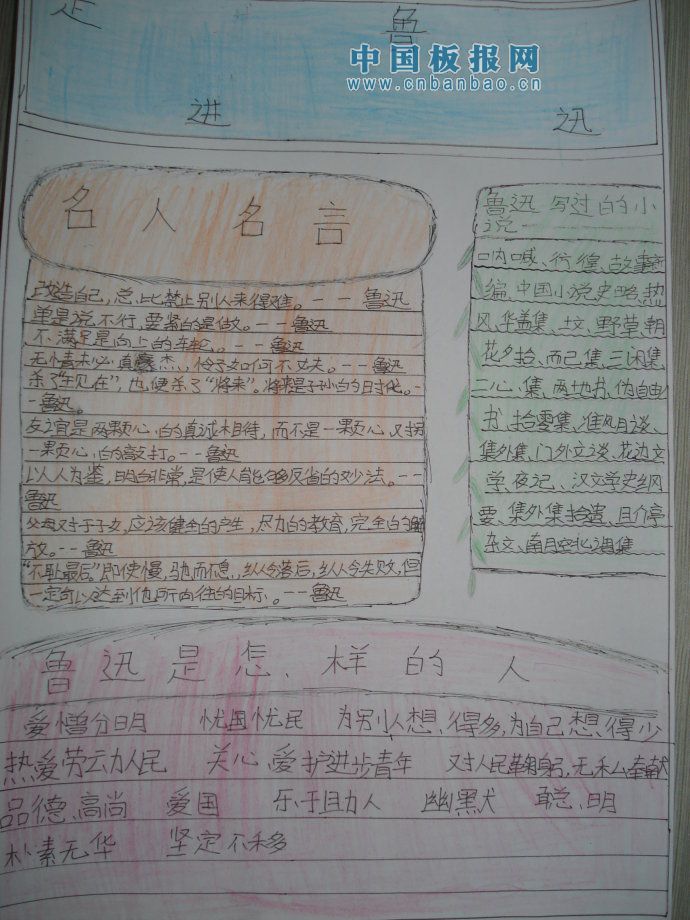 走 鲁
中国板报网
www.cnbanbao.cn
进 迅
名人名言
改造自己，总比禁止别人来得难。——鲁迅
单是说不行，要紧的是做。——鲁迅
不满足是向上的车轮。——鲁迅
无情未必真豪杰，怜子如何不丈夫。——鲁迅
杀了“现在”，也便杀了“将来”。将来是子孙的时代。——
鲁迅。
友谊是两颗心的真诚相待，而不是一颗心对另
一颗心的敲打。——鲁迅
以人为鉴，明白非常，是使人能够反省的妙法。——
鲁迅
父母对于子女，应该健全的产生，尽力的教育，完全的解
放。——鲁迅
“不耻最后”。即使慢，驰而不息，纵令落后，纵令失败，但
一定可以达到他所向往的目标。——鲁迅
鲁迅写过的小
说
呐喊、彷徨、故事新
编、中国小说史略、热
风、华盖集、坟、野草、朝
花夕拾、而已集、三闲集
二心集、两地书、伪自由
书、拾零集、准风月谈、
集外集、门外文谈、花边文
学、夜记、汉文学史纲
要、集外集拾遗、且介亭
杂文、南腔北调集
鲁迅是怎样的人
爱憎分明 忧国忧民 为别人想得多，为自己想得少
热爱劳动人民 关心爱护进步青年 对人民鞠躬，无私奉献
品德高尚 爱国 乐于助人 幽默 聪明
朴素无华 坚定不移